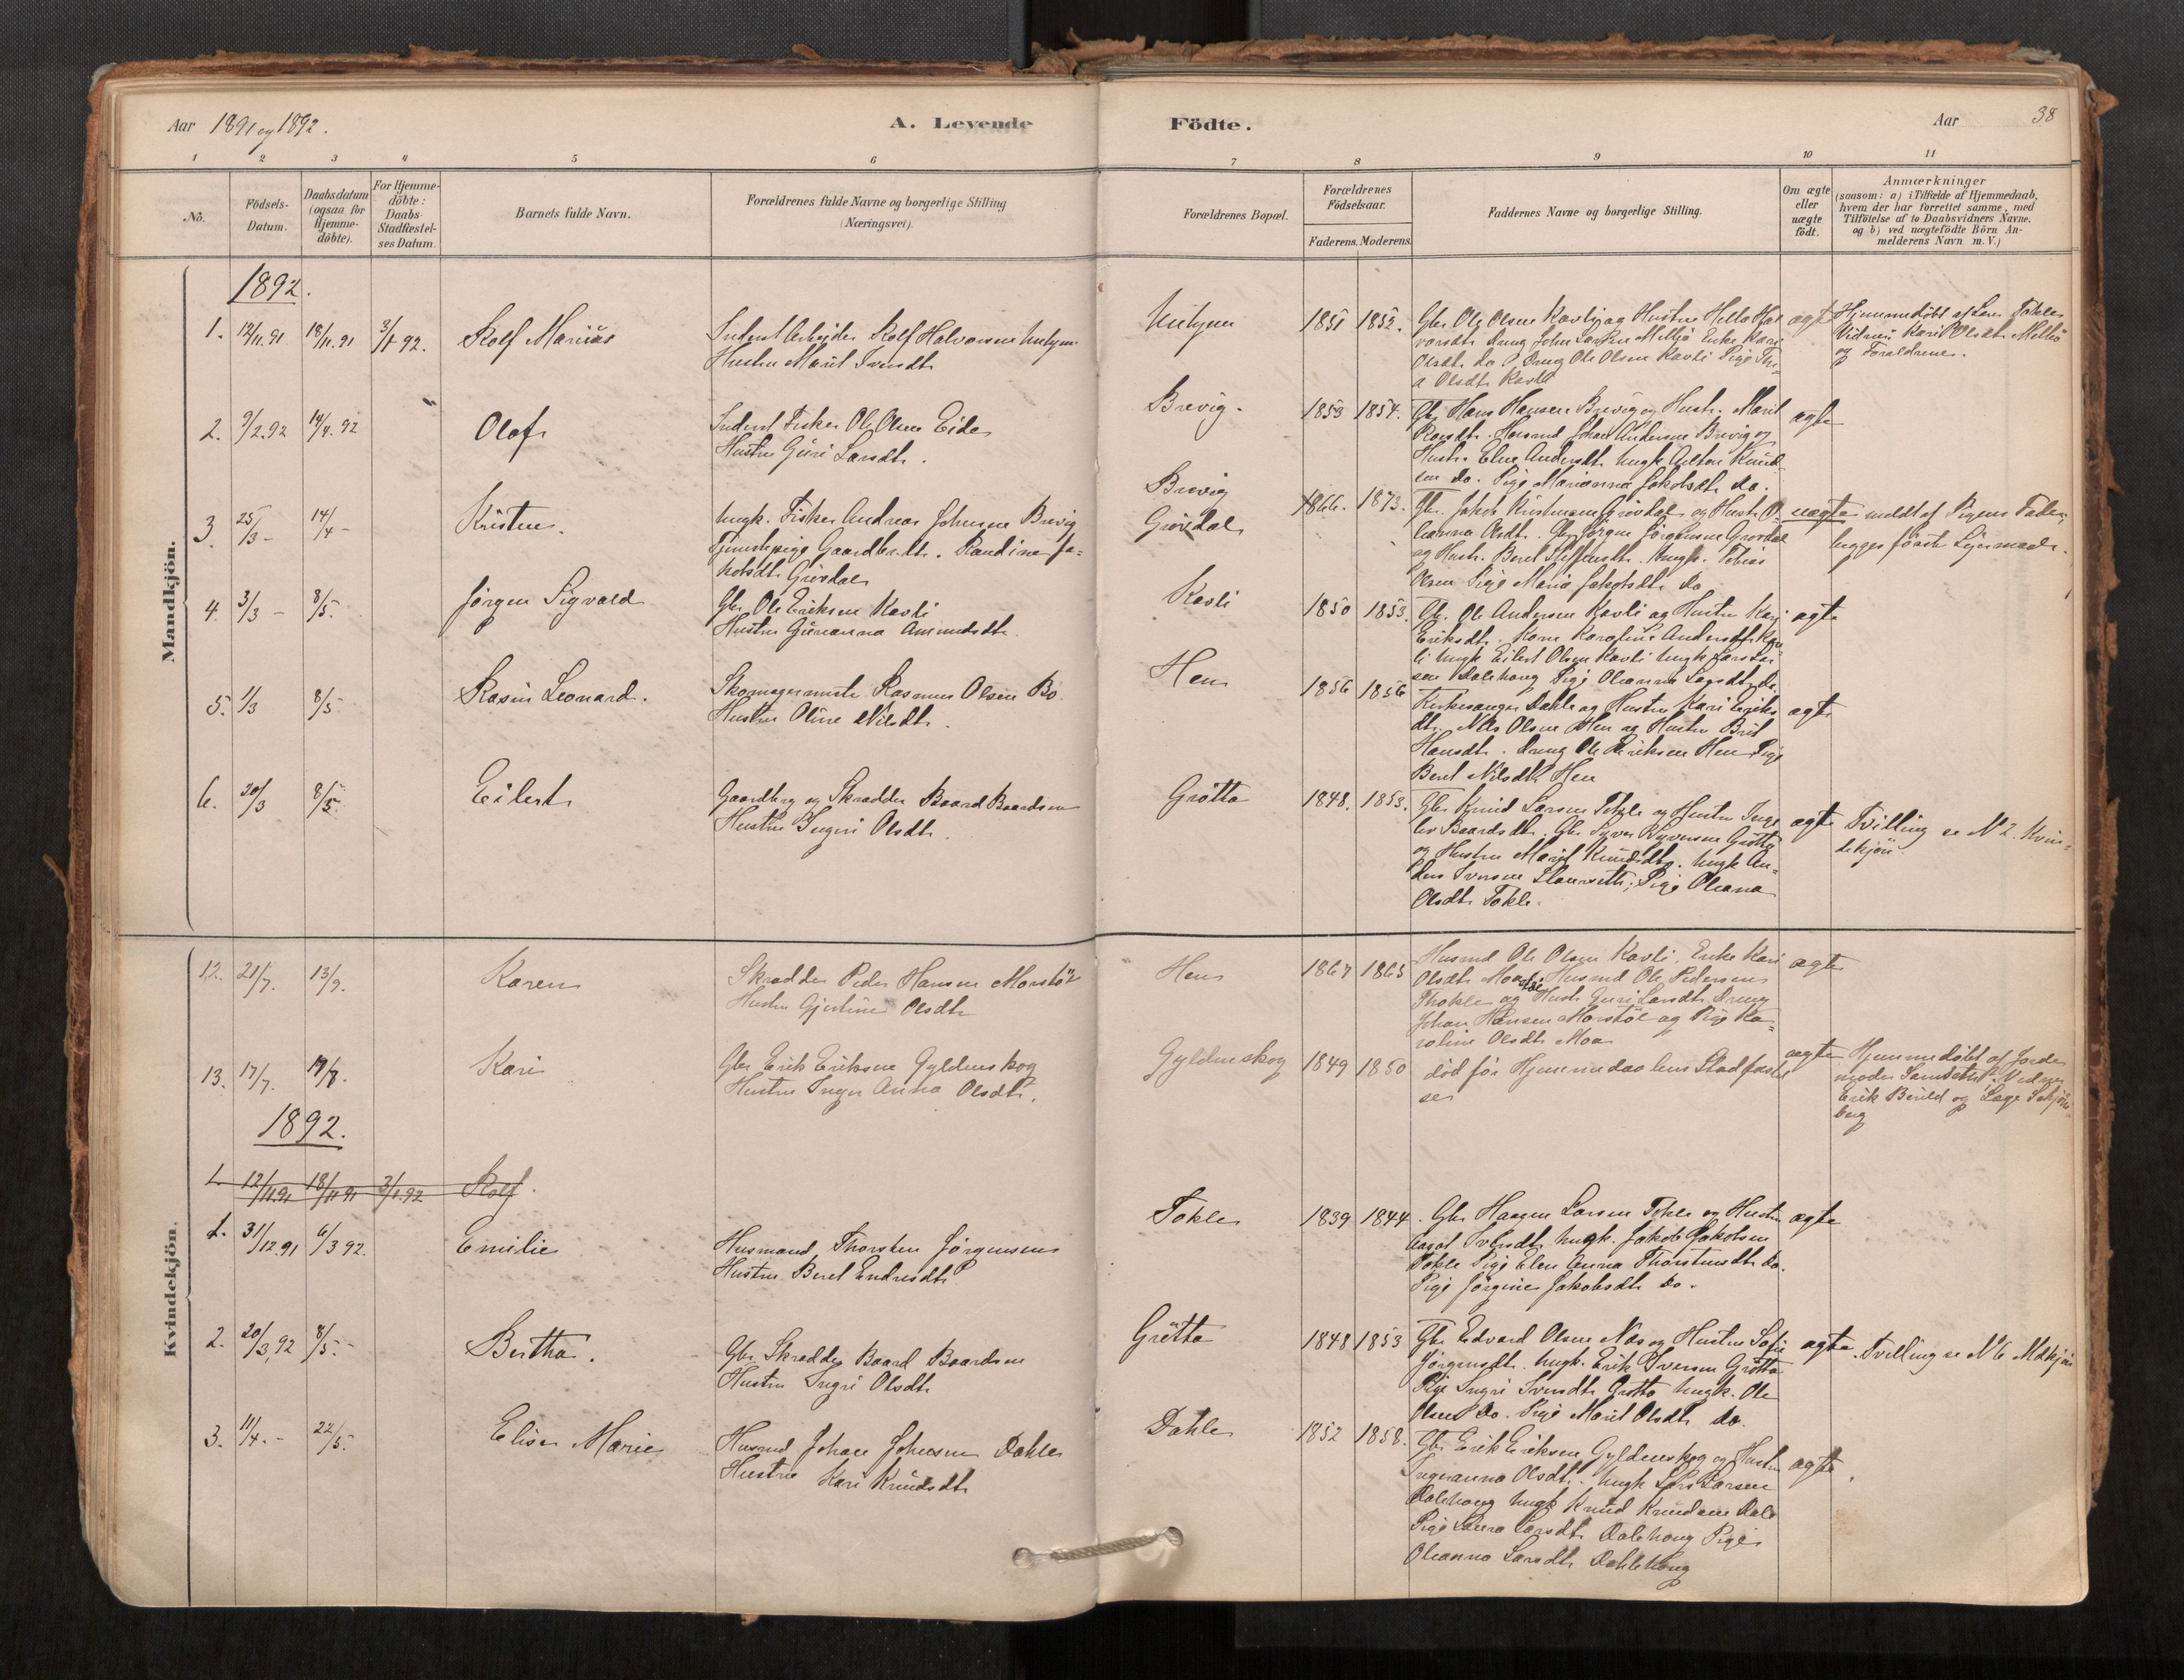 Aar 1891 og 1892.
A. Levende
Födte.
Aar
38
1 2 3 4 5 6 7 8 9 10 11
No.
Födsels-
Datum.
Daabsdatum
(ogsaa for
Hjemme-
döbte).
For Hjemme-
döbte:
Daabs-
Stadfæstel-
ses Datum.
Barnets fulde Navn.
Forældrenes fulde Navne og borgerlige Stilling
(Næringsvei).
Forældrenes Bopæl.
Forældrenes
Födselsaar.
Faderens. Moderens.
Faddernes Navne og borgerlige Stilling.
Om ægte
eller
uægte
födt.
Anmærkninger
(saasom: a) i Tilfælde af Hjemmedaab,
hvem der har forrettet samme, med
Tilföielse af to Daabsvidners Navne,
og b) ved uægtefödte Börn An-
melderens Navn m. V.)
Mandkjön.
1892.
1. 12/11.91 18/11.91 3/1 92. Rolf Marius
Inderst Arbejder Rolf Halvorsen
Hustru Marit Iversdt.
1851 1852.
Gbr Ole Olsen Kavli og Hustru
Olsdt. do Dreng Ole Olsen Kavli Pige
a Olsdt Kavli
ægte
Hjemmedøbt af
Vidner: Kari Olsdt.
og Forældrene.
2. 9/2.92 14/4.92 Olaf
Inderst Fisker Ole Olsen Eide
Hustru Guri Larsdt.
Brevig.
1853 1854.
Gbr Hans Hansen Brevig og Hustr. Marit
Husmd Johan Andersen Brevig og
Hustr. Elen Andersdt. Ungk. Anton Knud-
sen do. Pige Marianna Jakobsdt. do.
ægte
3. 25/3 - 14/4 - Kristen.
Ungk. Fisker Andreas Johnsen Brevig
Tjenestepige Gaardbr.dt. Randine Ja-
kobsdt. Grövdal
Brevig
Grövdal
1866. 1873.
Gbr. Jakob Kristensen Grövdal og Hustr. O-
leanna Olsdt. Gbr Jörgen Jörgensen Grövdal
og Hustr. Beret Steffensdt. Ungk. Tobias
Olsen Pige Maria Jakobsdt. do
uægte
meldt af Pigens Fader,
begges förste Leiermaal.
4. 3/3 - 8/5. Jörgen Sigvald
Gbr. Ole Eriksen Kavli
Hustru Gurianna Amundsdt.
Kavli
1850 1853.
Gbr. Ole Andersen Kavli og Hustru Kari
Eriksdt. Kone Karoline Andersdt. Kav-
li Ungk Eilert Olsen Kavli Ungk
sen Dalehaug Pige Oleanna Larsdt. do.
ægte
5. 1/3 8/5 Rasm Leonard.
Skomagermester Rasmus Olsen Bö.
Hustru Oline Nilsdt.
Hen
1856 1856
Kirkesanger Dahle og Hustru Kari Eriks
dt. Nils Olsen Hen og Hustru Brit
Hansdt. Dreng Ole Eriksen Hen Pige
Beret Nilsdt. Hen
ægte
6. 20/3 8/5. Eilert
Gaardbrg og Skrædder Baard Baardsen
Hustru Ingri Olsdt.
Grötta
1848. 1853.
Gbr. Knud Larsen Tokle og Hustru Inge
lev Baardsdt. Gbr Syver Syversen Grötta
og Hustru Marit Knudsdt. Ungk. An-
ders Iversen; Pige Oleana
Olsdt. Tokle.
ægte
Tvilling se N 2. Kvin-
dekjön
Kvindekjön.
12. 21/7. 13/9. Karen
Skrædder Peder Hansen Morstöl
Hustru Gjertine Olsdt
Hen
1867 1865
Husmd Ole Olsen Kavli, Enke Kari
Olsdt. Moa Husmd Ole Pedersen
Thokle og Hustr Guri Larsdt. Dreng
Johan Hansen Morstöl og Pige Ka-
roline Olsdt Moa
ægte
13. 17/7. 19/7. Kari
Gbr Erik Eriksen Gyldenskog
Hustru Inger Anna Olsdt.
Gyldenskog
1849 1850
död för Hjemmedaabens Stadfæstel
se
ægte
Hjemmedöbt af Jorde
moder Vidner
Erik og Lage
berg
1892.
1. 12/11.91 18/11 91 3/1.92 Rolf.
1. 31/12.91 6/3 92. Emilie
Husmand Thorsten Jörgensen
Hustru Beret Endresdt.
Tokle
1839 1844
Gbr Haagen Larsen Tokle og Hustru
Aagot Iversdt. Ungk. Jakob Jakobsen
Tokle Pige Elen Anna Thorstensdt. do.
Pige Jörgine Jakobsdt. do.
ægte
2. 20/3,92 8/5. - Bertha.
Gbr Skrædder Baard Baardsen
Hustru Ingri Olsdt.
Grötta
1848 1853
Gbr. Edvard Olsen Næs og Hustru Sofie
Jörgensdt. Ungk. Erik Iversen Grötta
Pige Ingri Iversdt. Grötta Ungk. Ole
Olsen do. Pige Marit Olsdt. do.
ægte
Tvilling se N 6 Mdkjön
3. 11/4. - 22/5. Elise Marie
Husmd Johan Johnsen Dahle
Hustru Kari Knudsdt
Dahle
1852 1858.
Gbr Erik Eriksen Gyldenskog og Hustru
Ingeranna Olsdt. Ungk Lars Larsen
Dalehaug Ungk Knud Knudsen Dale
Pige Laura Larsdt. Dalehaug Pige
Oleanna Larsdt. Dahlehaug
ægte